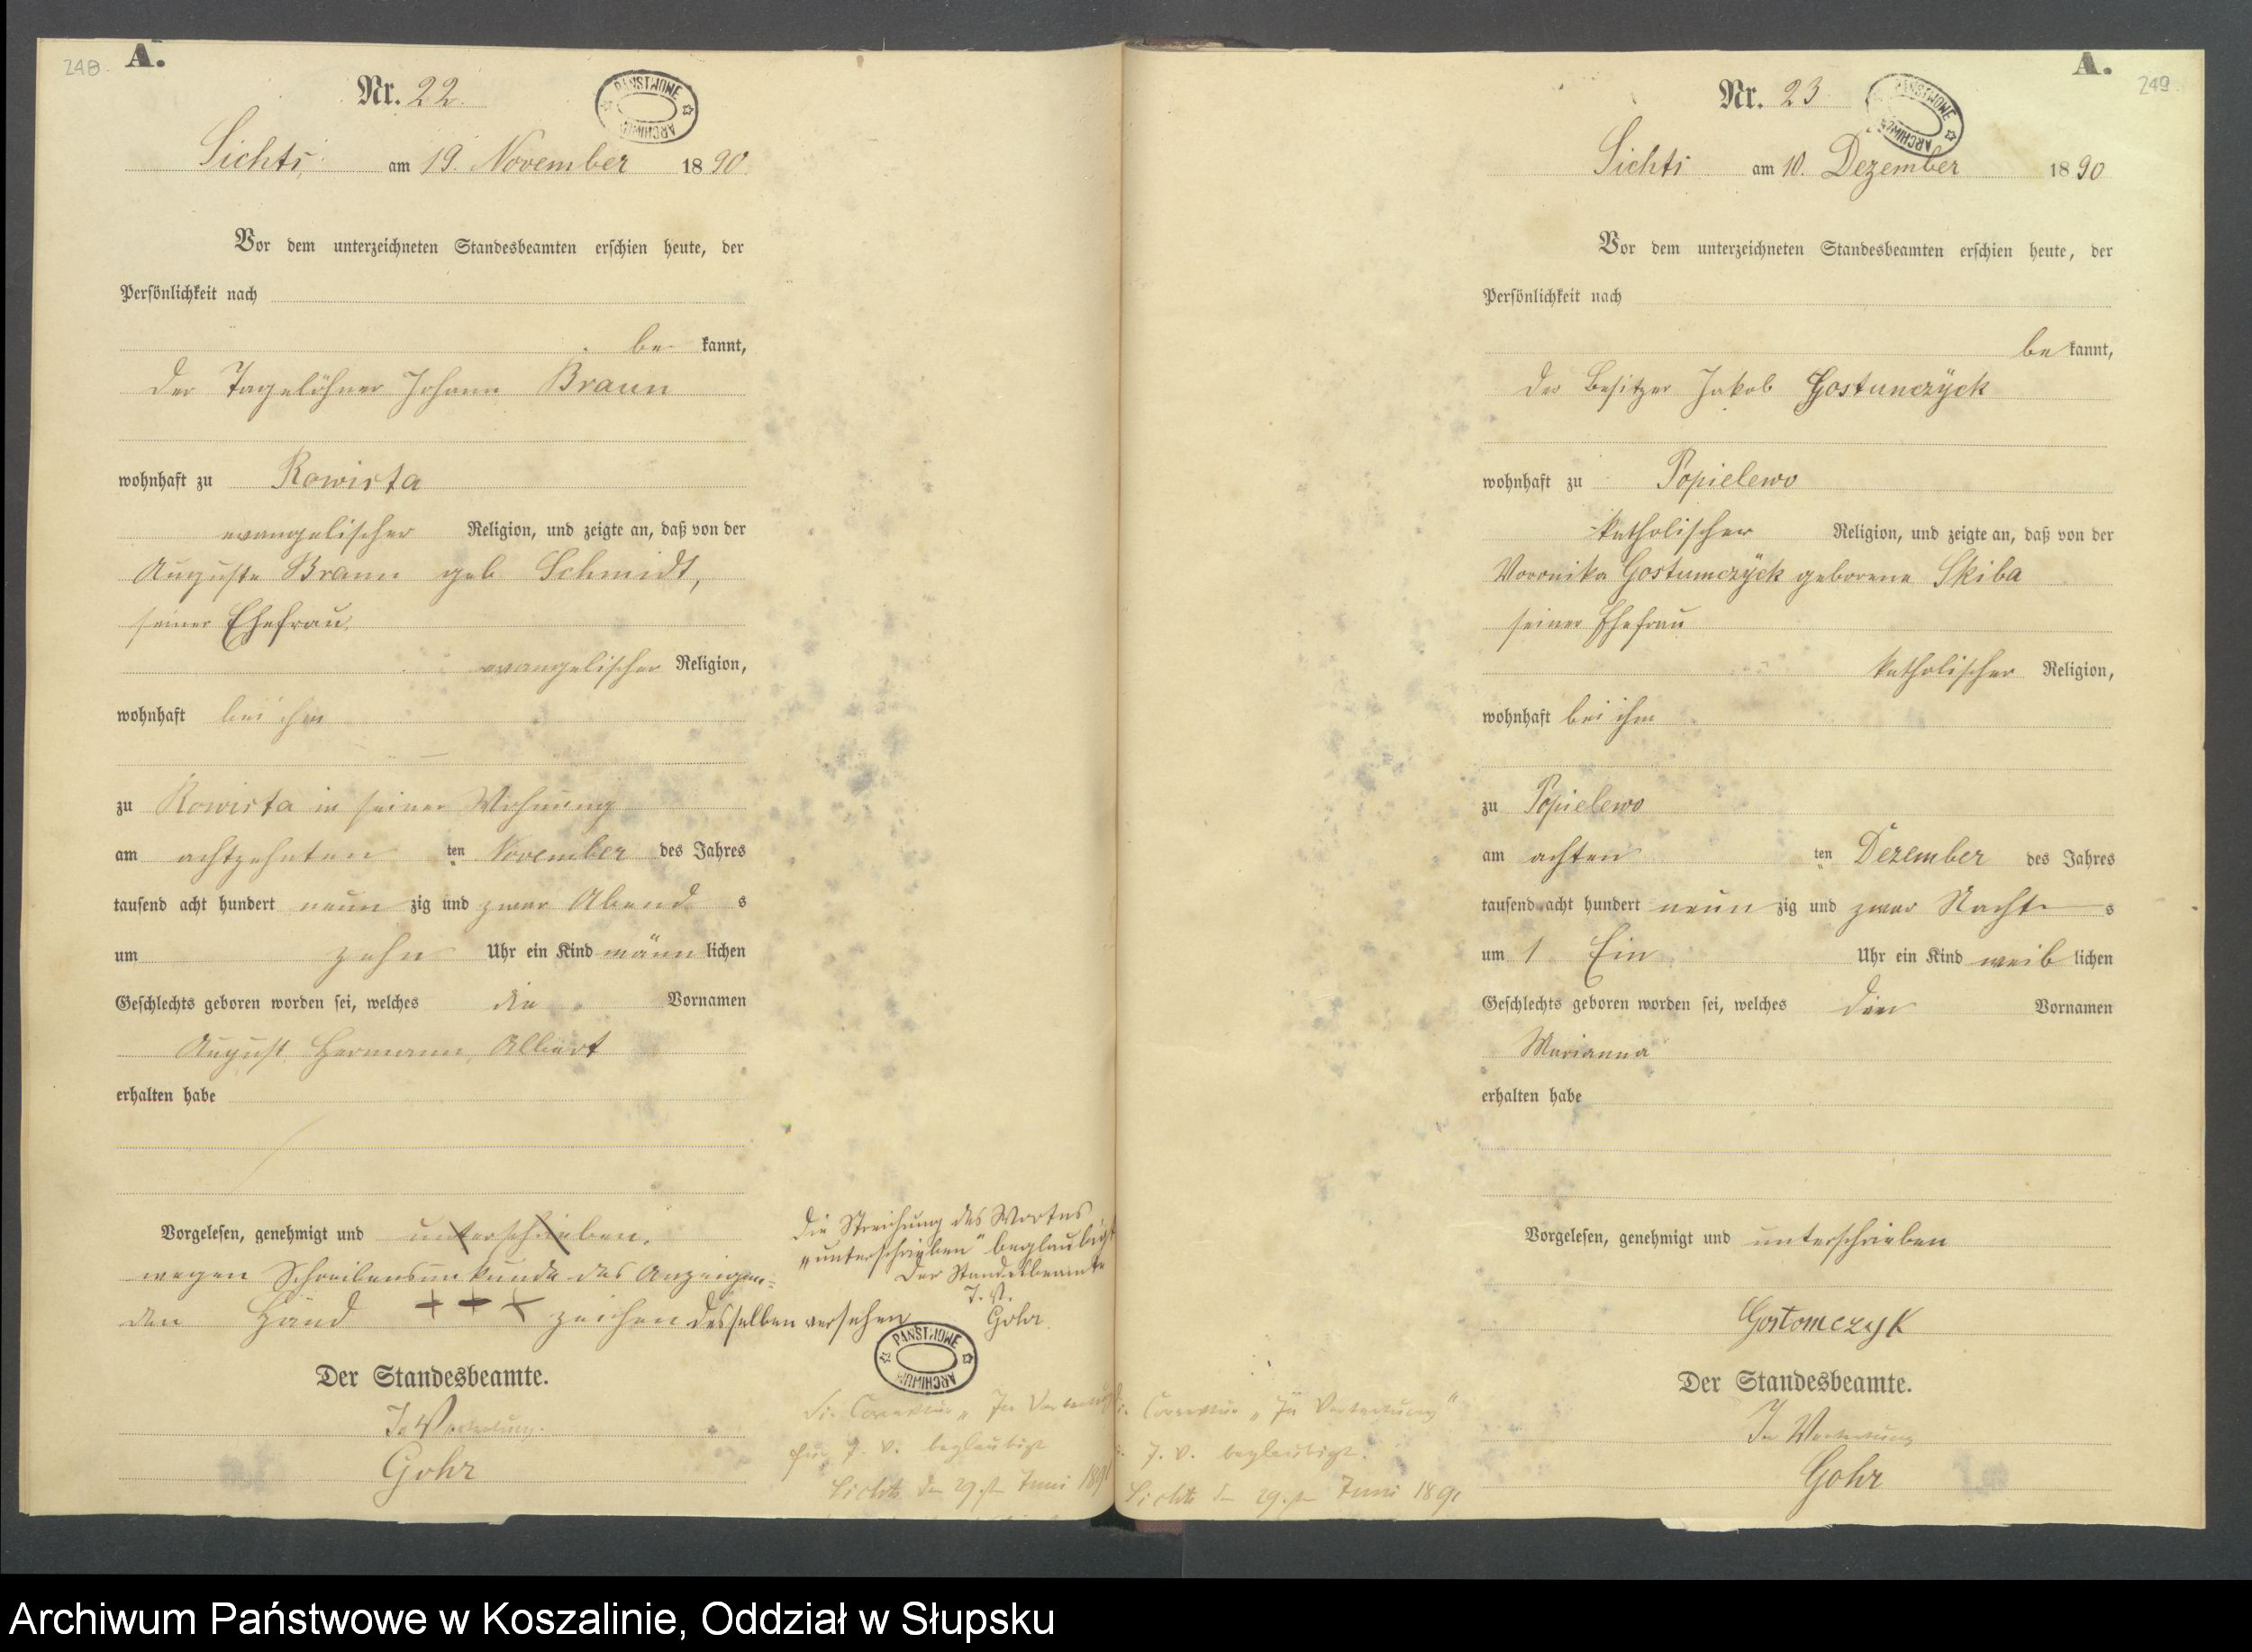 248.
A.
Nr. 22.
PAŃSTWOWE ARCHIWUM
Lichts, am 19. November 1890.
Vor dem unterzeichneten Standesbeamten erschien heute, der
Persönlichkeit nach
be kannt,
der Tagelöhner Johann Braun
wohnhaft zu Rowista
evangelischer Religion, und zeigte an, daß von der
Auguste Braun geb Schmidt,
seiner Ehefrau,
evangelischer Religion,
wohnhaft bei ihm
zu Rowista in seiner Wohnung
am achtzehnten ten November des Jahres
tausend acht hundert neun zig und zwar Abend s
um zehn Uhr ein Kind männ lichen
Geschlechts geboren worden sei, welches die Vornamen
August, Hermann, Albert
erhalten habe
Vorgelesen, genehmigt und unterschrieben.
wegen Schreibensunkunde des Anzeigen=
den Hand + + + zeichen desselben versehen
Der Standesbeamte.
In Vertretung.
Gohr
Die Streichung des Wortes
„unterschrieben" beglaubigt
Der Standesbeamte
J. V.
Gohr.
PAŃSTWOWE ARCHIWUM
die Correktur „In
für J. V. beglaubigt
den 29. Juni 1891
249.
A.
Nr. 23
PAŃSTWOWE ARCHIWUM
Lichts am 10. Dezember 1890
Vor dem unterzeichneten Standesbeamten erschien heute, der
Persönlichkeit nach
be kannt,
der Besitzer Jakob Gostunczÿck
wohnhaft zu Popielewo
katholischer Religion, und zeigte an, daß von der
Veronika Gostumczÿck geborene Skiba
seiner Ehefrau
katholischer Religion,
wohnhaft bei ihm
zu Popielewo
am achten ten Dezember des Jahres
tausend acht hundert neun zig und zwar Nacht s
um 1 Ein Uhr ein Kind weib lichen
Geschlechts geboren worden sei, welches den Vornamen
Marianna
erhalten habe
Vorgelesen, genehmigt und unterschrieben
Gostomczyk
Der Standesbeamte.
In Vertretung
Gohr
Correktur „In Vertretung"
J. V. beglaubigt.
den 29. Juni 1891
Archiwum Państwowe w Koszalinie, Oddział w Słupsku